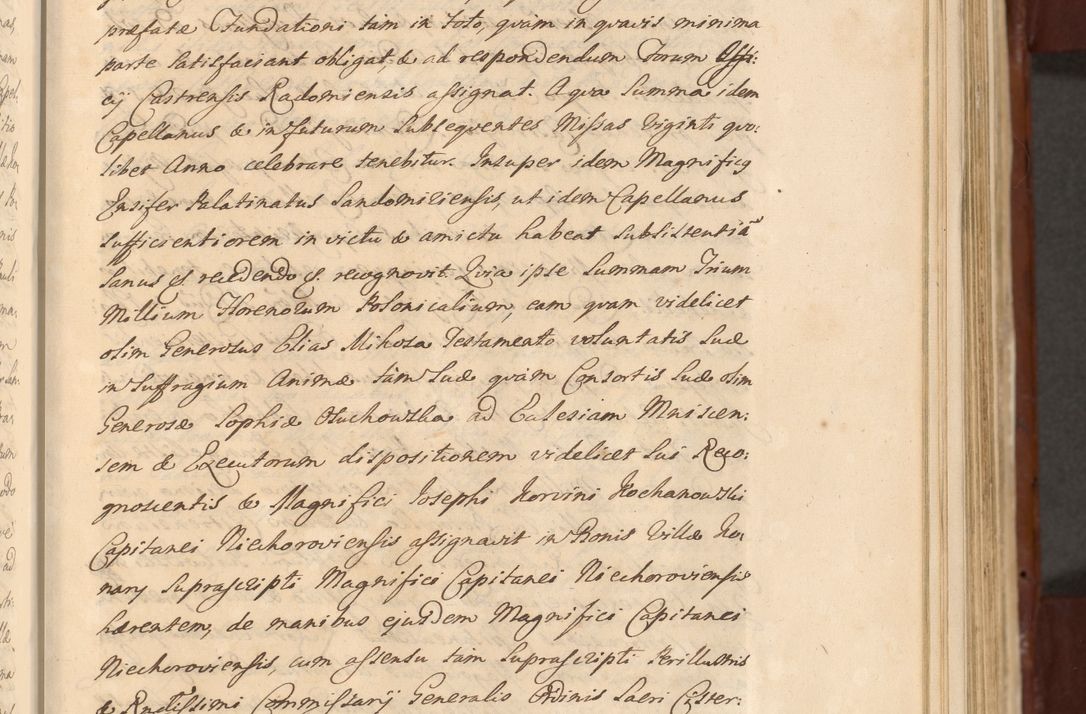 præfatæ Fundationi tàm in toto, quàm in quavis minima
parte satisfaciant obligat, & ad respondendum Forum Offi:
cij Castrensis Radomiensis assignat. A qua Summa idem
Capellanus & in futurum subsequentes Missas Viginti quo:
libet Anno celebrare tenebitur. Insuper idem Magnificq
Ensifer Palatinatus Sandomiriensis, ut idem Capellanus
sufficientiorem in victu & amictu habeat subsistentiã
sanus & recedendo & recognovit. Quia ipse Summam Trium
Millium Florenorum Polonicalium, eam quam videlicet
olim Generosus Elias Mikosza Testamento voluntatis suæ
in Suffragium Animæ tàm suæ quàm Consortis suæ olim
Generosæ Sophiæ Osuchowska ad Eclesiam Mniscen:
sem & Executorum dispositionem videlicet sui Reco:
gnoscentis & Magnifici Josephi Korvini Kochanowski
Capitanei Niechoroviensis assignavit in Bonis Villæ Ko
nary suprascripti Magnifici Capitanei Niechoroviensis
hærentem, de manibus ejusdem Magnifici Capitanei
Niechoroviensis, cum assensu tàm suprascripti Perillustris
& Rndissimi Commissarij Generalis Ordinis Sacri Cister: